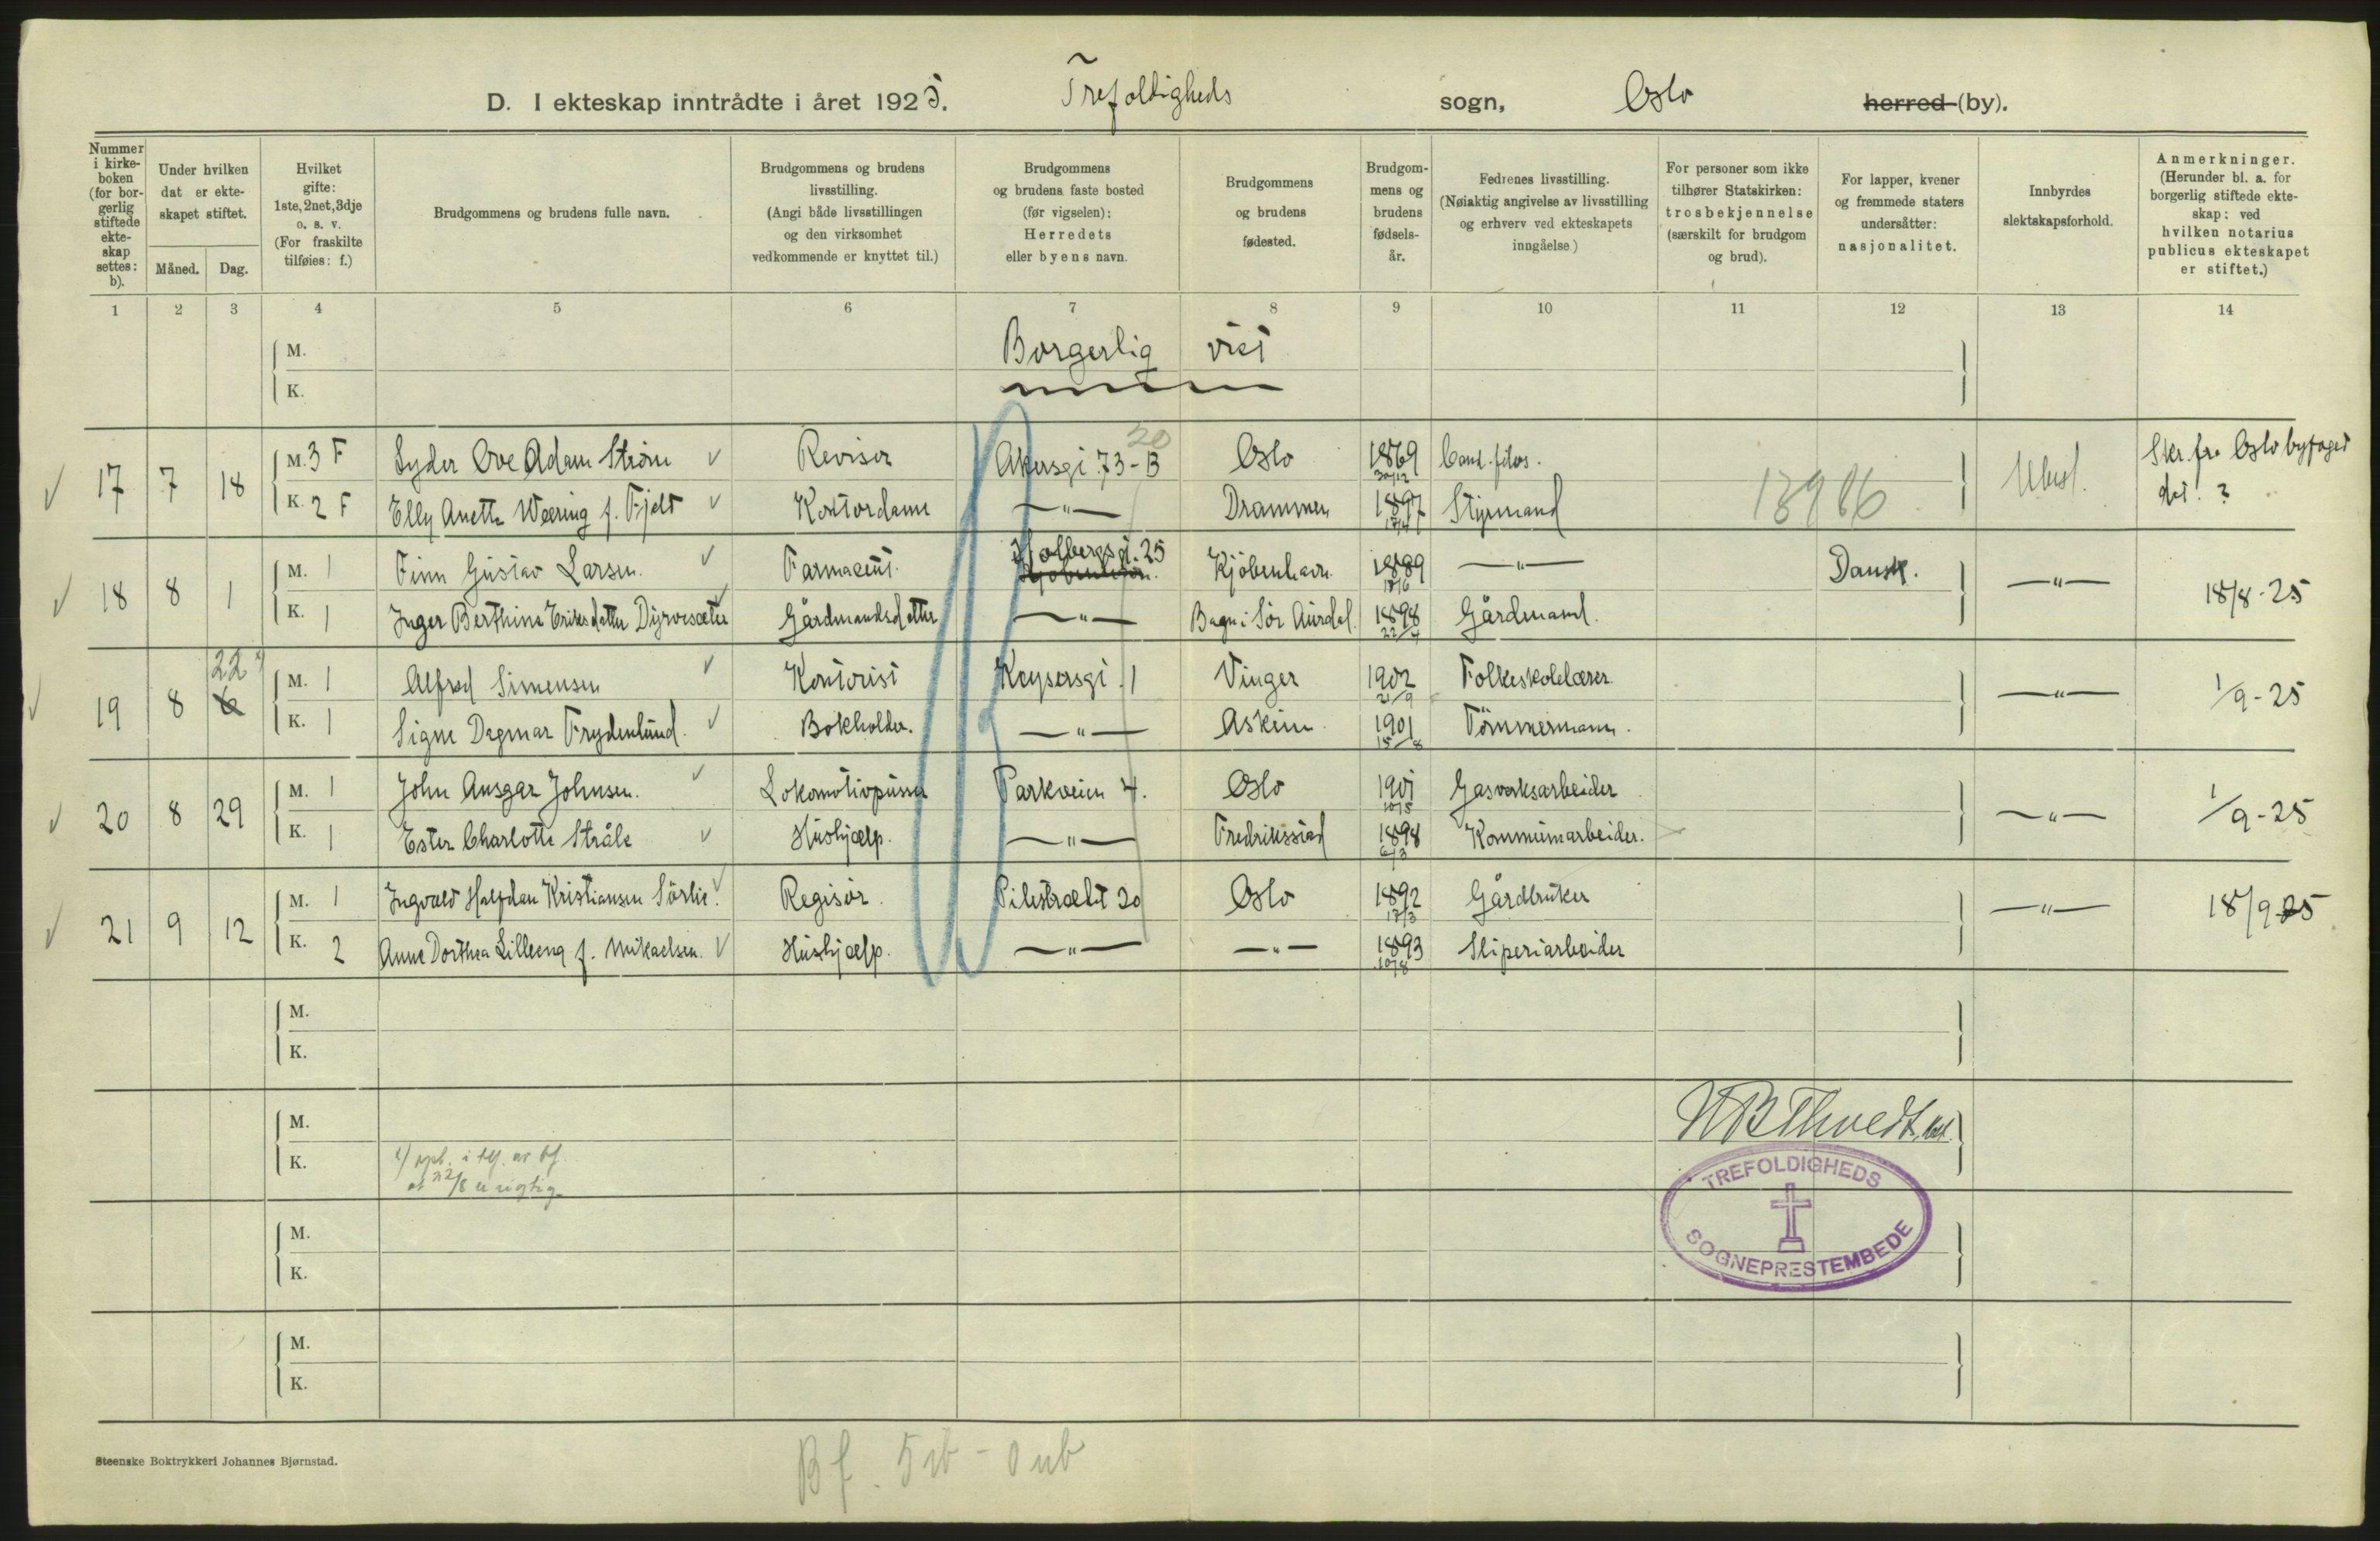 D. I ekteskap inntrådte i året 1925. Trefoldigheds sogn, Oslo herred (by).
Nummer i kirke-boken (for bor-gerlig stiftede ekte-skap settes: b).
Under hvilken dat er ekte-skapet stiftet.
Måned. Dag.
Hvilket gifte: 1ste, 2net, 3dje o. s. v. (For fraskilte tilføies: f.)
Brudgommens og brudens fulle navn.
Brudgommens og brudens livsstilling. (Angi både livsstillingen og den virksomhet vedkommende er knyttet til.)
Brudgommens og brudens faste bosted (før vigselen): Herredets eller byens navn.
Brudgommens og brudens fødested.
Brudgom-mens og brudens fødsels-år.
Fedrenes livsstilling. (Nøiaktig angivelse av livsstilling og erhverv ved ekteskapets inngåelse.)
For personer som ikke tilhører Statskirken: trosbekjennelse (særskilt for brudgom og brud).
For lapper, kvener og fremmede staters undersåtter: nasjonalitet.
Innbyrdes slektskapsforhold.
Anmerkninger. (Herunder bl. a. for borgerlig stiftede ekte-skap: ved hvilken notarius publicus ekteskapet er stiftet.)
1 2 3 4 5 6 7 8 9 10 11 12 13 14
M. Borgerlig viet
K.
17 7 18 M. 3 F Lyder Ove Adam Strøm Revisor Akersgt 73-B 20 Oslo 1869 30/12 Cand. filos. Ubesl. Skr. fra Oslo byfoged
K. 2 F Elly Anette Wæring f. Fjeld Kontordame —"— Drammen 1897 Styrmand dat. ?
18 8 1 M. 1 Finn Gustav Larsen. Farmaceut. Holbergsgt. 25 Kjøbenhavn. Kjøbenhavn. 1889 18/6 —"— Dansk. —"— 18/8-25
K. 1 Inger Berthine Eriksdatter Dyrvesæter Gårdmandsdatter —"— Bagn i Sør Aurdal. 1898 22/4 Gårdmand.
19 8 6 22 1) M. 1 Alfred Simensen Kontorist Keysersgt 11 Vinger 1902 21/9 Folkeskolelærer —"— 1/9-25
K. 1 Signe Dagmar Frydenlund. Bokholder. —"— Askim 1901 15/8 Tömmermann.
20 8 29 M. 1 John Ansgar Johnsen. Lokomotivpusser Parkveien 4. Oslo 1901 10/5 Gasverksarbeider —"— 1/9-25
K. 1 Ester Charlotte Stråle Hushjælp. —"— Fredriksstad 1898 6/3 Kommunearbeider.
21 9 12 M. 1 Ingvald Halfdan Kristiansen Sörlie. Regisör. Pilestrædet 20 Oslo 1892 17/3 Gårdbruker —"— 18/9-25
K. 2 Anne Dorthea Lilleeng f. Mikaelsen. Hushjælp. —"— —"— 1893 10/8 Sliperiarbeider
M.
K.
M.
K.
1) opl. i tlf. av bf.
at 22/8 er rigtig
TREFOLDIGHEDS
SOGNEPRESTEMBEDE
M.
K.
M.
K.
Steenske Boktrykkeri Johannes Bjørnstad.
Bf. 5 ib - 0 ub